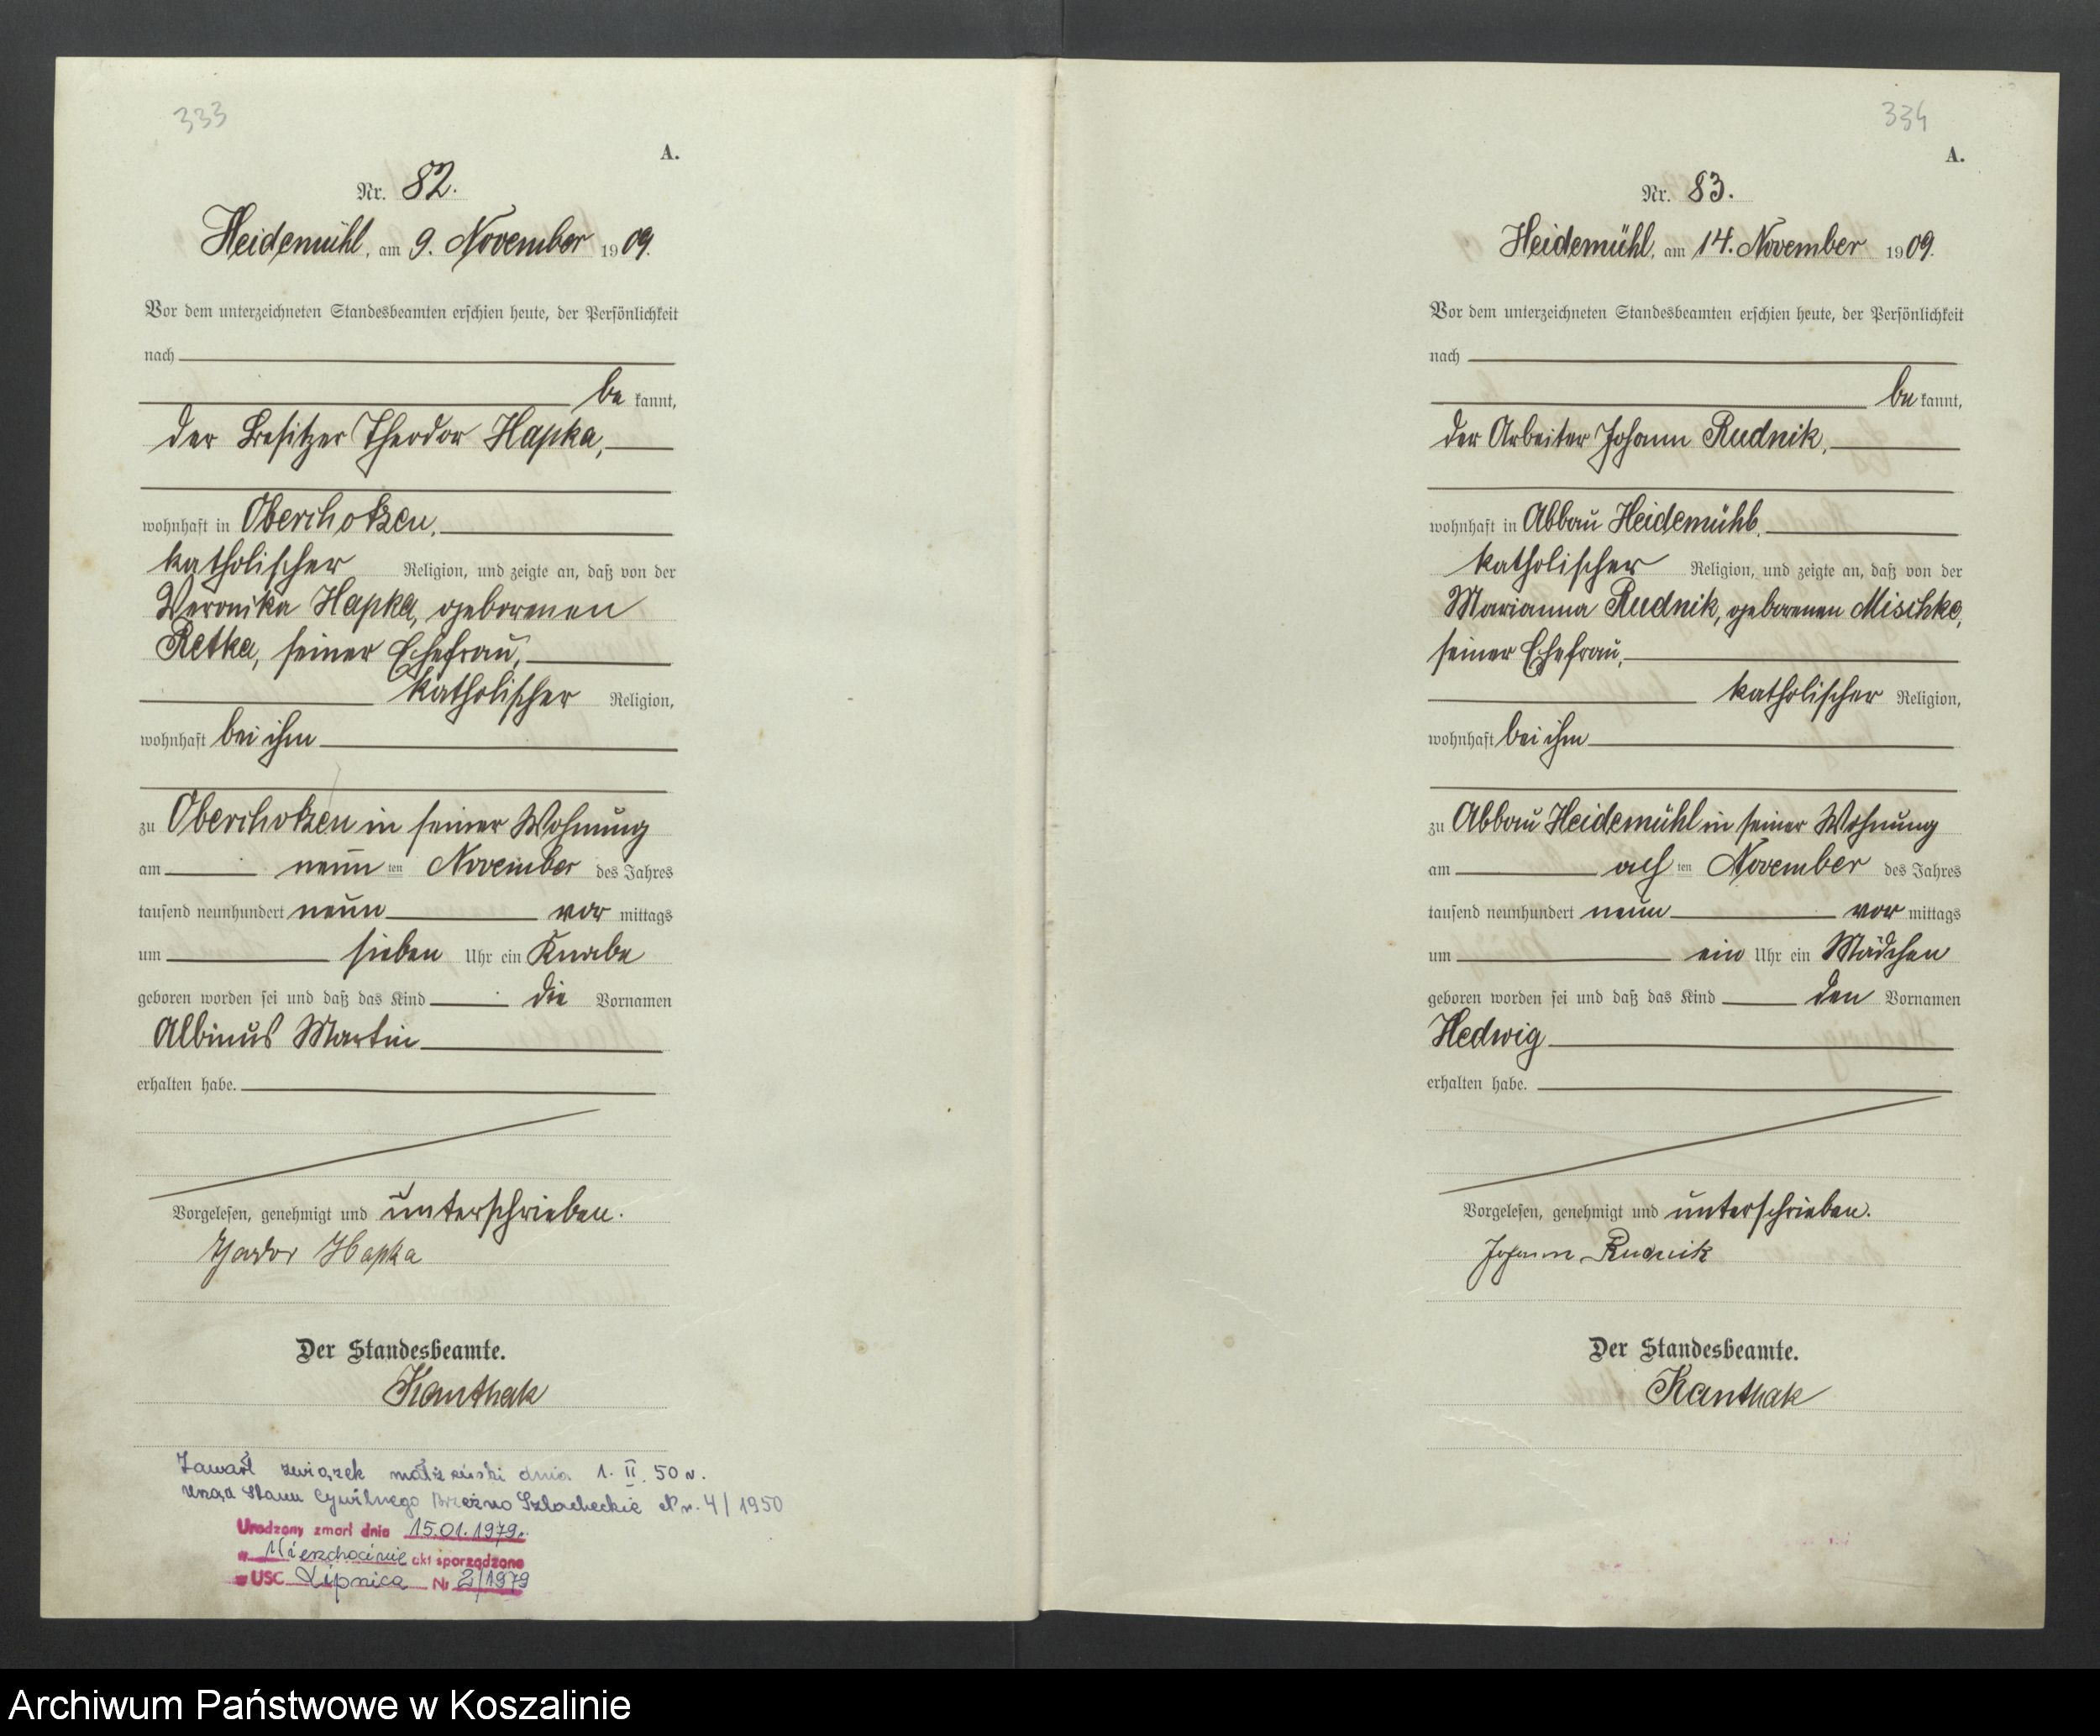 333
A.
Nr. 82.
Heidemühl, am 9. November 1909.
Vor dem unterzeichneten Standesbeamten erschien heute, der Persönlichkeit
nach
be kannt,
der Besitzer Theodor Hapka,
wohnhaft in Oberchotzen,
katholischer Religion, und zeigte an, daß von der
Veronika Hapka, geborenen
Retka, seiner Ehefrau,
katholischer Religion,
wohnhaft bei ihm
zu Oberchotzen in seiner Wohnung
am neun ten November des Jahres
tausend neunhundert neun vor mittags
um sieben Uhr ein Knabe
geboren worden sei und daß das Kind die Vornamen
Albinus Martin
erhalten habe.
Vorgelesen, genehmigt und unterschrieben.
Hapka
Der Standesbeamte.
Kanthak
Zawarł związek małżeński dnia 1. II. 50 r.
Urząd Stanu Cywilnego Brzeźno Szlacheckie Nr. 4/1950
Urodzony zmarł dnia 15.01.1979r.
w akt sporządzono
w USC Lipnica Nr 2/1979
334
A.
Nr. 83.
Heidemühl, am 14. November 1909.
Vor dem unterzeichneten Standesbeamten erschien heute, der Persönlichkeit
nach
be kannt,
der Arbeiter Johann Rudnik,
wohnhaft in Abbau Heidemühl,
katholischer Religion, und zeigte an, daß von der
Marianna Rudnik, geborenen Mischke,
seiner Ehefrau,
katholischer Religion,
wohnhaft bei ihm
zu Abbau Heidemühl in seiner Wohnung
am acht ten November des Jahres
tausend neunhundert neun vor mittags
um ein Uhr ein Mädchen
geboren worden sei und daß das Kind den Vornamen
Hedwig
erhalten habe.
Vorgelesen, genehmigt und unterschrieben.
Johann Rudnik
Der Standesbeamte.
Kanthak
Archiwum Państwowe w Koszalinie